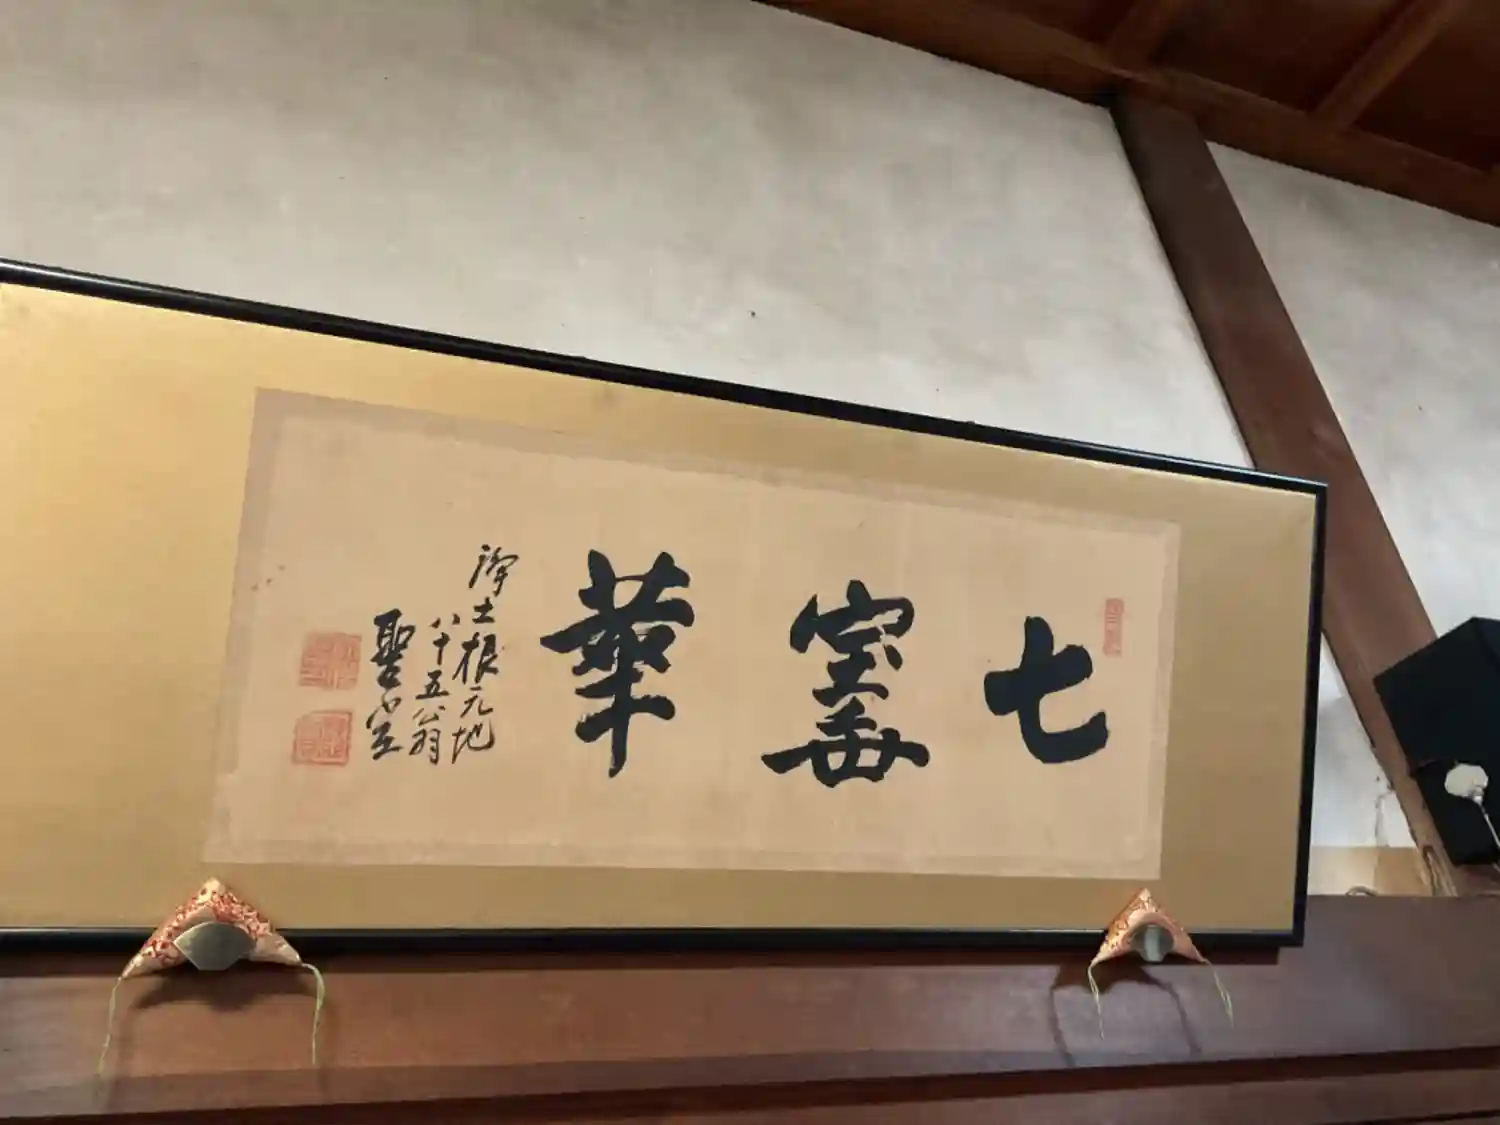 七寶華
淨土根元地
八十五翁
聖